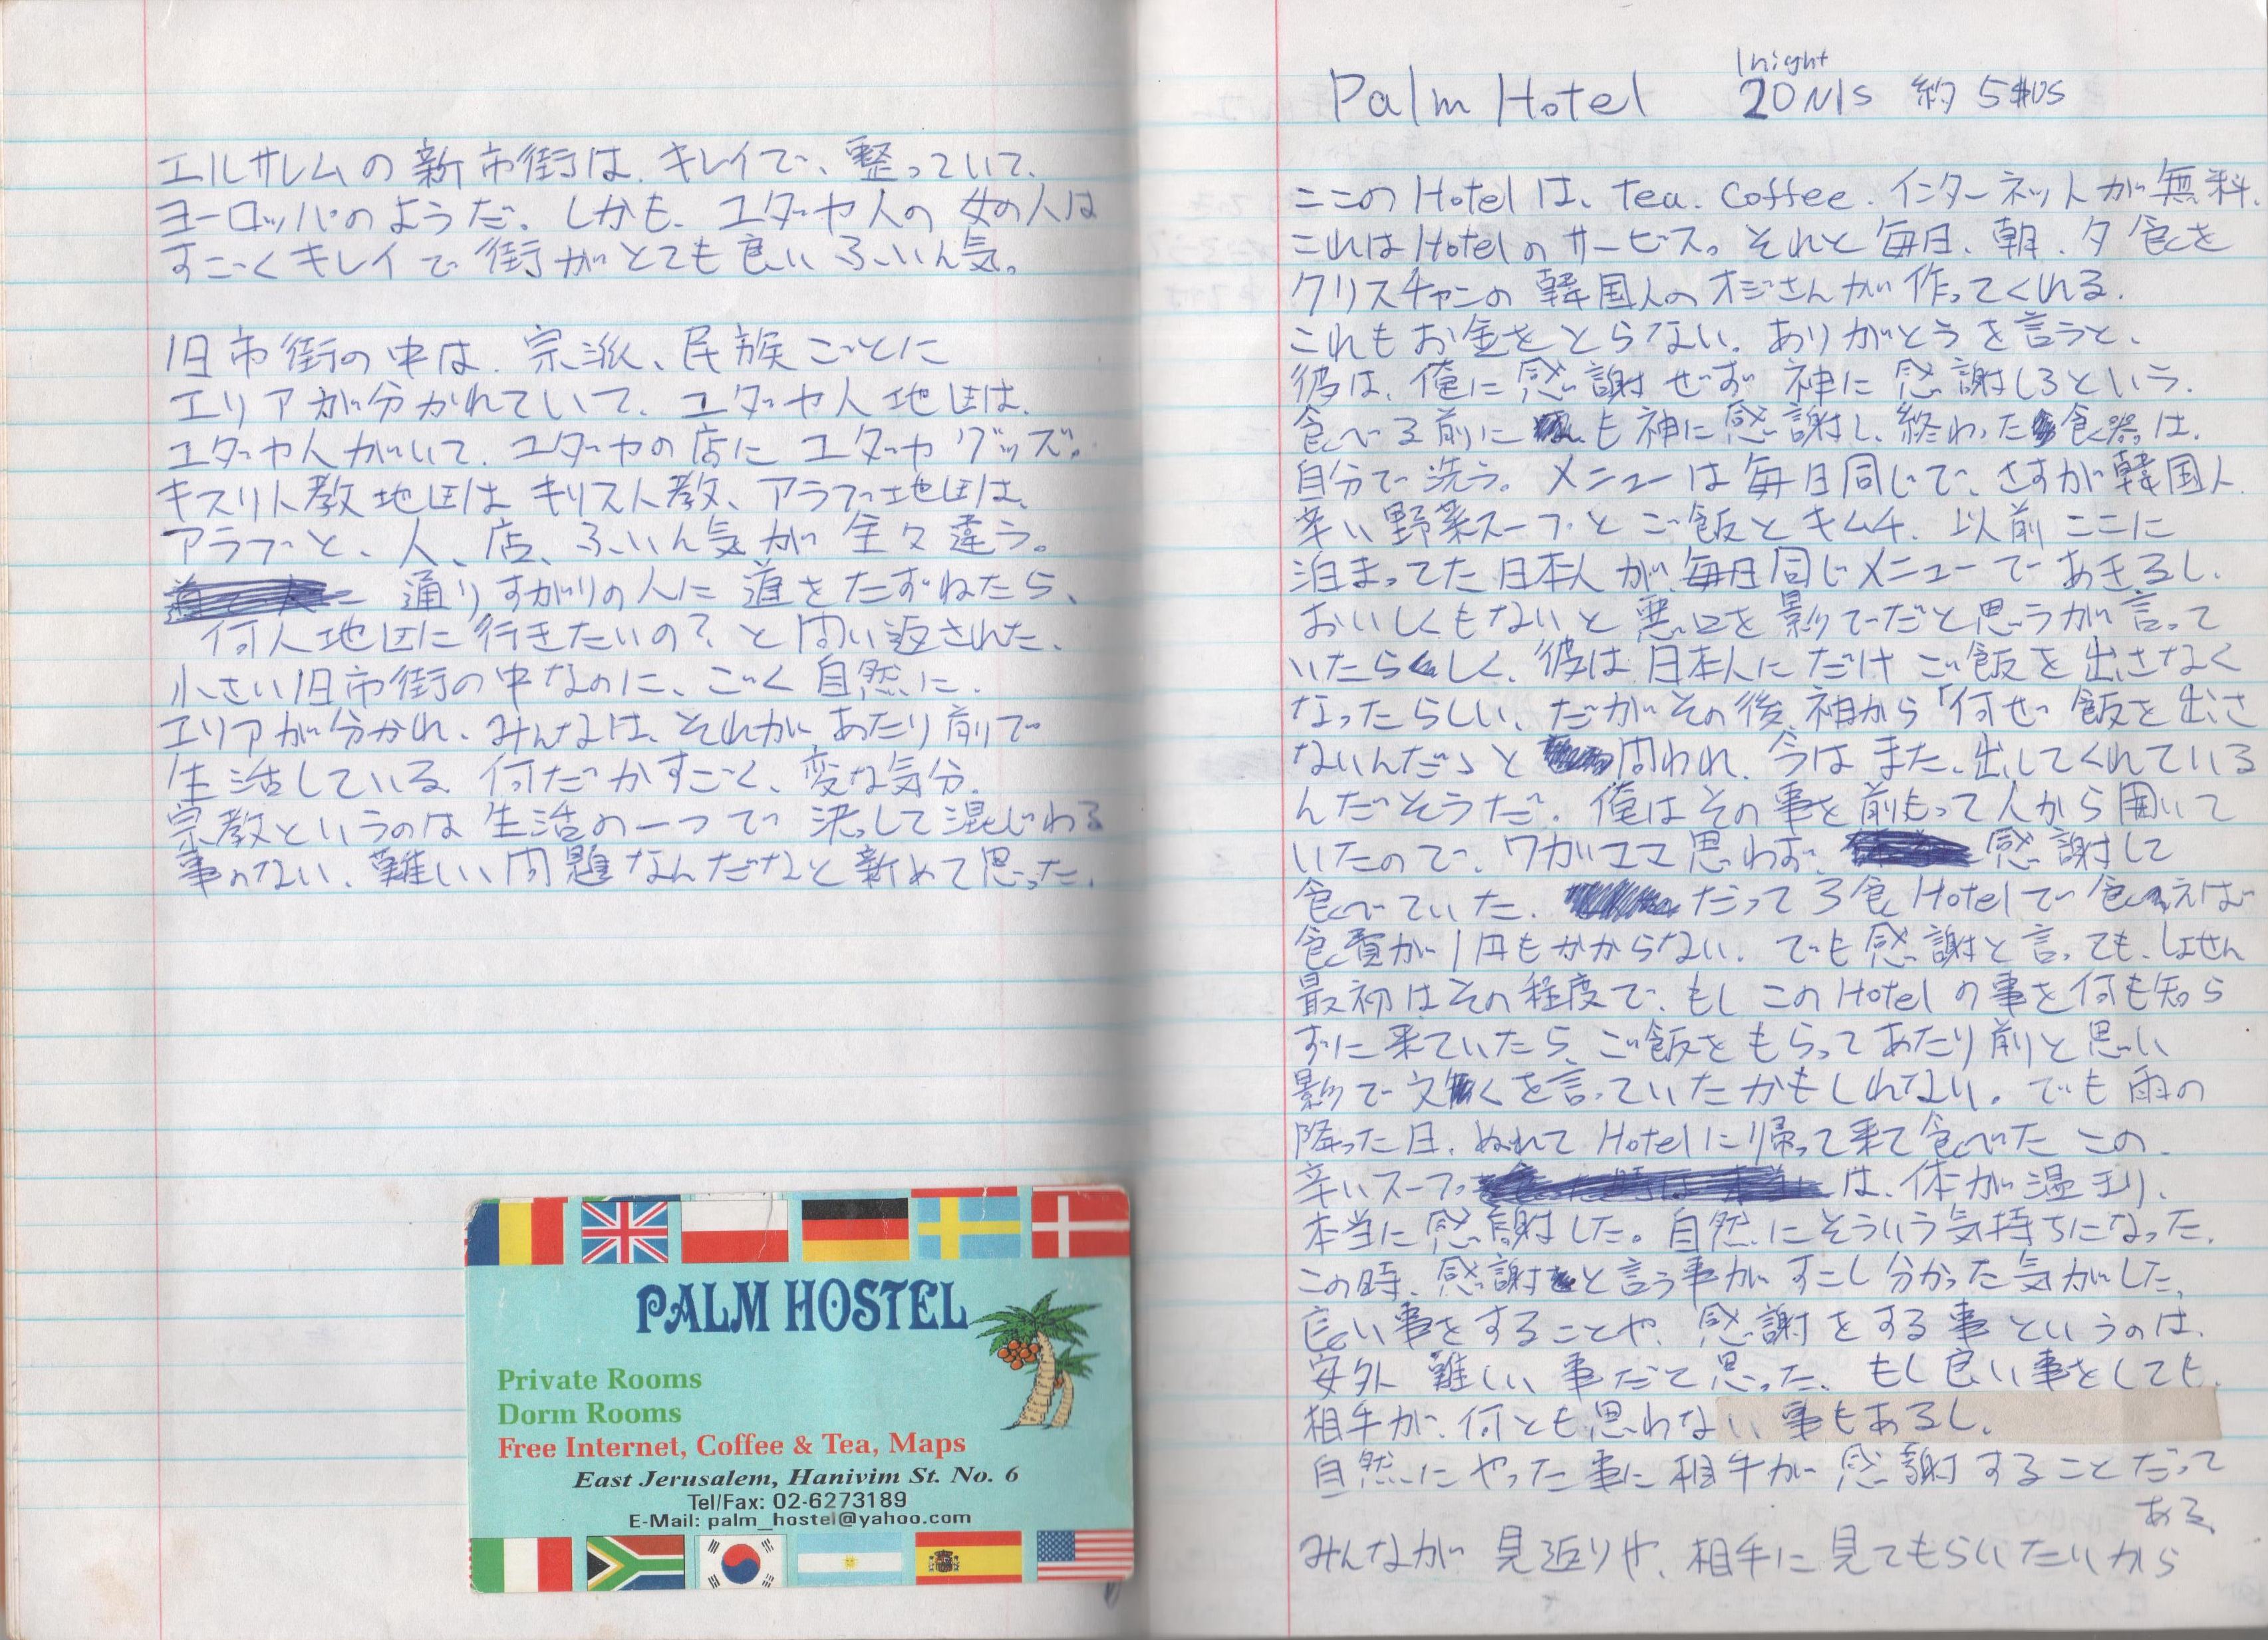 エルサレムの新市街は、キレイで、整っていて、
ヨーロッパのようだ。しかも、ユダヤ人の女の人は
すごくキレイで街がとても良いふいん気。
旧市街の中は、宗派、民族ごとに
エリアが分かれていて、ユダヤ人地区は、
ユダヤ人がいて、ユダヤの店にユダヤグッズ。
キスリト教地区はキリスト教、アラブ地区は、
アラブと、人、店、ふいん気が全々違う。
通りすがりの人に道をたずねたら、
何人地区に行きたいの?と問い返された、
小さい旧市街の中なのに、ごく自然に、
エリアが分かれ、みんなは、それがあたり前で
生活している、何だかすごく、変な気分、
宗教というのは生活の一つで決して混じわる
事のない、難しい問題なんだなと新めて思った、
PALM HOSTEL
Private Rooms
Dorm Rooms
Free Internet, Coffee & Tea, Maps
East Jerusalem, Hanivim St. No. 6
Tel/Fax: 02-6273189
E-Mail: palm_hostel@yahoo.com
1night
Palm Hotel 20NIS 約5$US
ここのHotelは、tea. coffee. インターネットが無料、
これはHotelのサービス。それと毎日、朝、夕食を
クリスチャンの韓国人のオジさんが作ってくれる.
これもお金をとらない。ありがとうを言うと、
彼は、俺に感謝せず神に感謝しろという.
食べる前にも神に感謝し、終わった食器は、
自分で洗う。メニューは毎日同じで、さすが韓国人
辛い野菜スープとご飯とキムチ、以前ここに
泊まってた日本人が、毎日同じメニューであきるし、
おいしくもないと悪口を影でだと思うが言って
いたらしく、彼は日本人にだけご飯を出さなく
なったらしい、だがその後、神から「何ぜ飯を出さ
ないんだ」と問われ、今はまた、出してくれている
んだそうだ。俺はその事を前もって人から聞いて
いたので、ワガママ思わず、感謝して
食べていた、だって3食Hotelで食えば
食費が1円もかからない、でも感謝と言っても、しょせん
最初はその程度で、もしこのHotelの事を何も知ら
ずに来ていたら、ご飯をもらってあたり前と思い
影で文くを言っていたかもしれない。でも雨の
降った日、ぬれてHotelに帰って来て食べたこの
辛いスープは、体が温まり、
本当に感謝した。自然にそういう気持ちになった、
この時、感謝と言う事がすこし分かった気がした、
良い事をすることや、感謝をする事というのは、
安外難しい事だて思った、もし良い事をしても、
相手が、何とも思わない事もあるし、
自然にやった事に相手が感謝することだって
ある、
みんなが見返りや、相手に見てもらいたいから